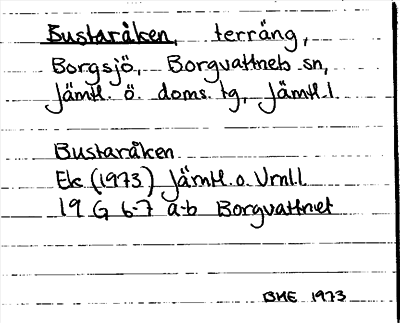 Bustaråken, terräng,
Borgsjö, Borgvattnets sn,
Jämtl. ö. doms. tg, Jämtl. l.
Bustaråken
Ek (1973) Jämtl. o. Vrnl. l
19 G 6-7 a-b Borgvattnet
BHE 1973